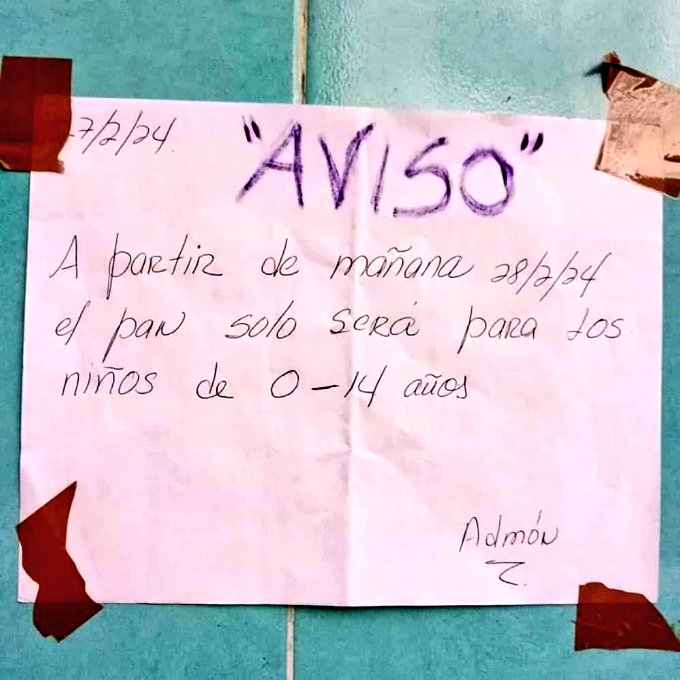 7/2/24.
"AVISO"
A partir de mañana 28/2/24
el pan solo será para los
niños de 0-14 años
Admón